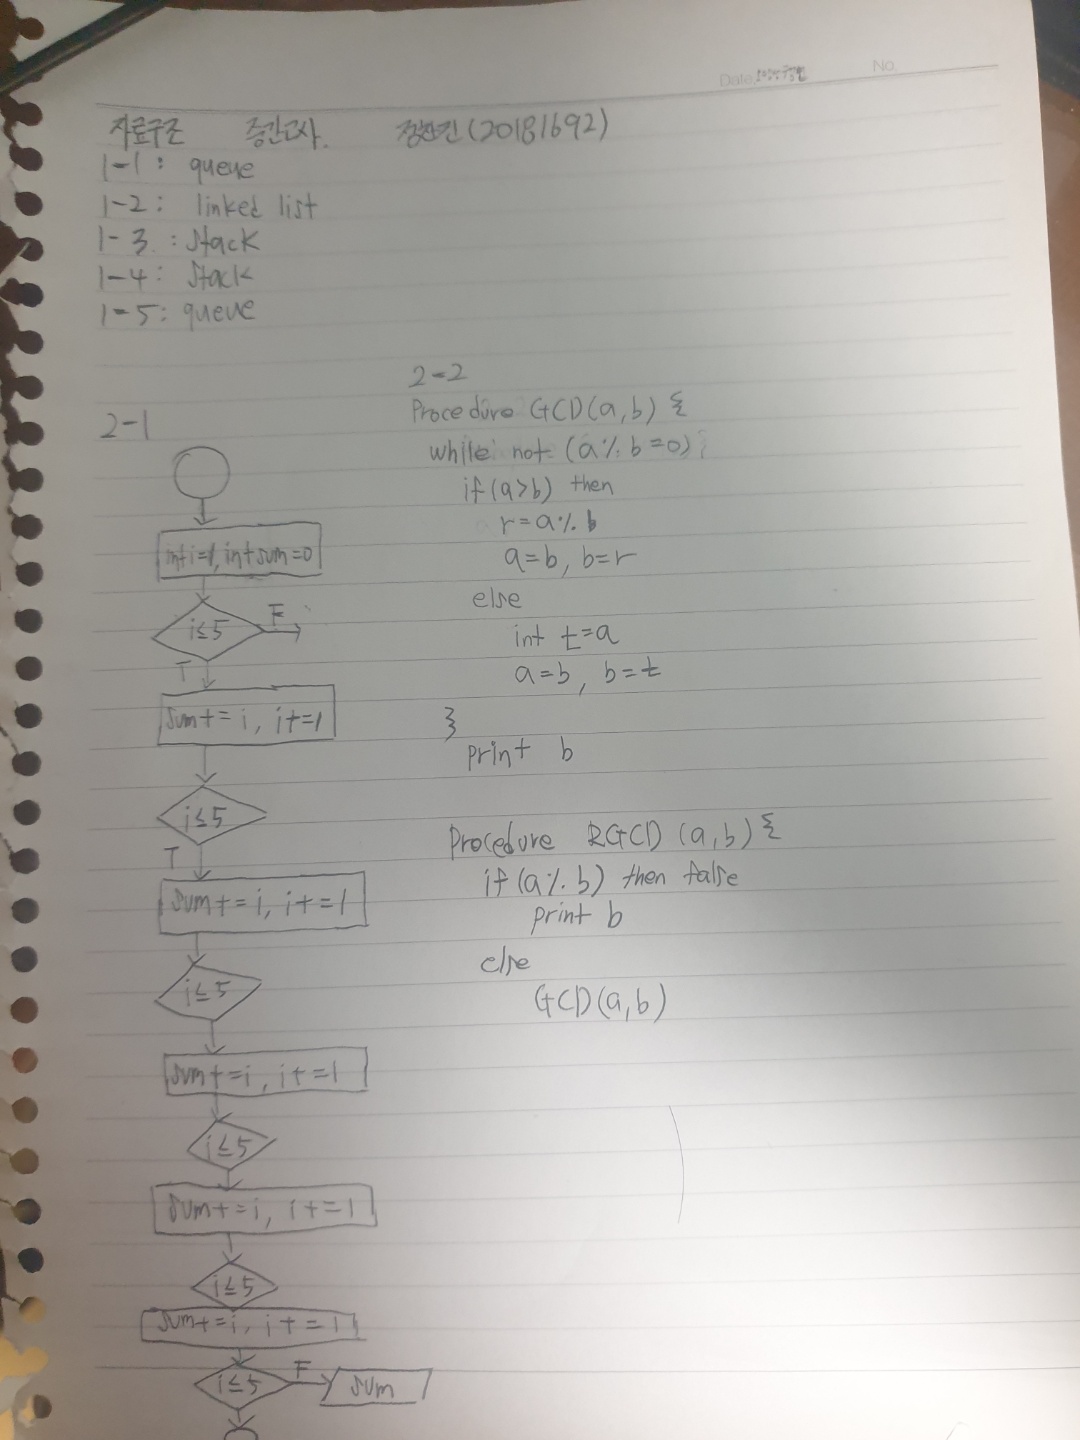 Date. No.
자료구조 중간고사. (20181692)
1-1: queue
1-2: linked list
1-3: stack
1-4: stack
1-5: queue
2-1
int i=1, int sum=0
i≤5 F
T
sum+=i, i+=1
i≤5
T
sum+=i, i+=1
i≤5
sum+=i, i+=1
i≤5
sum+=i, i+=1
i≤5
sum+=i, i+=1
i≤5 F sum
2-2
Procedure GCD(a,b) {
while not (a% b=0)
if(a>b) then
r=a% b
a=b, b=r
else
int t=a
a=b, b=t
}
print b
Procedure RGCD (a,b) {
if(a% b) then false
print b
else
GCD(a,b)